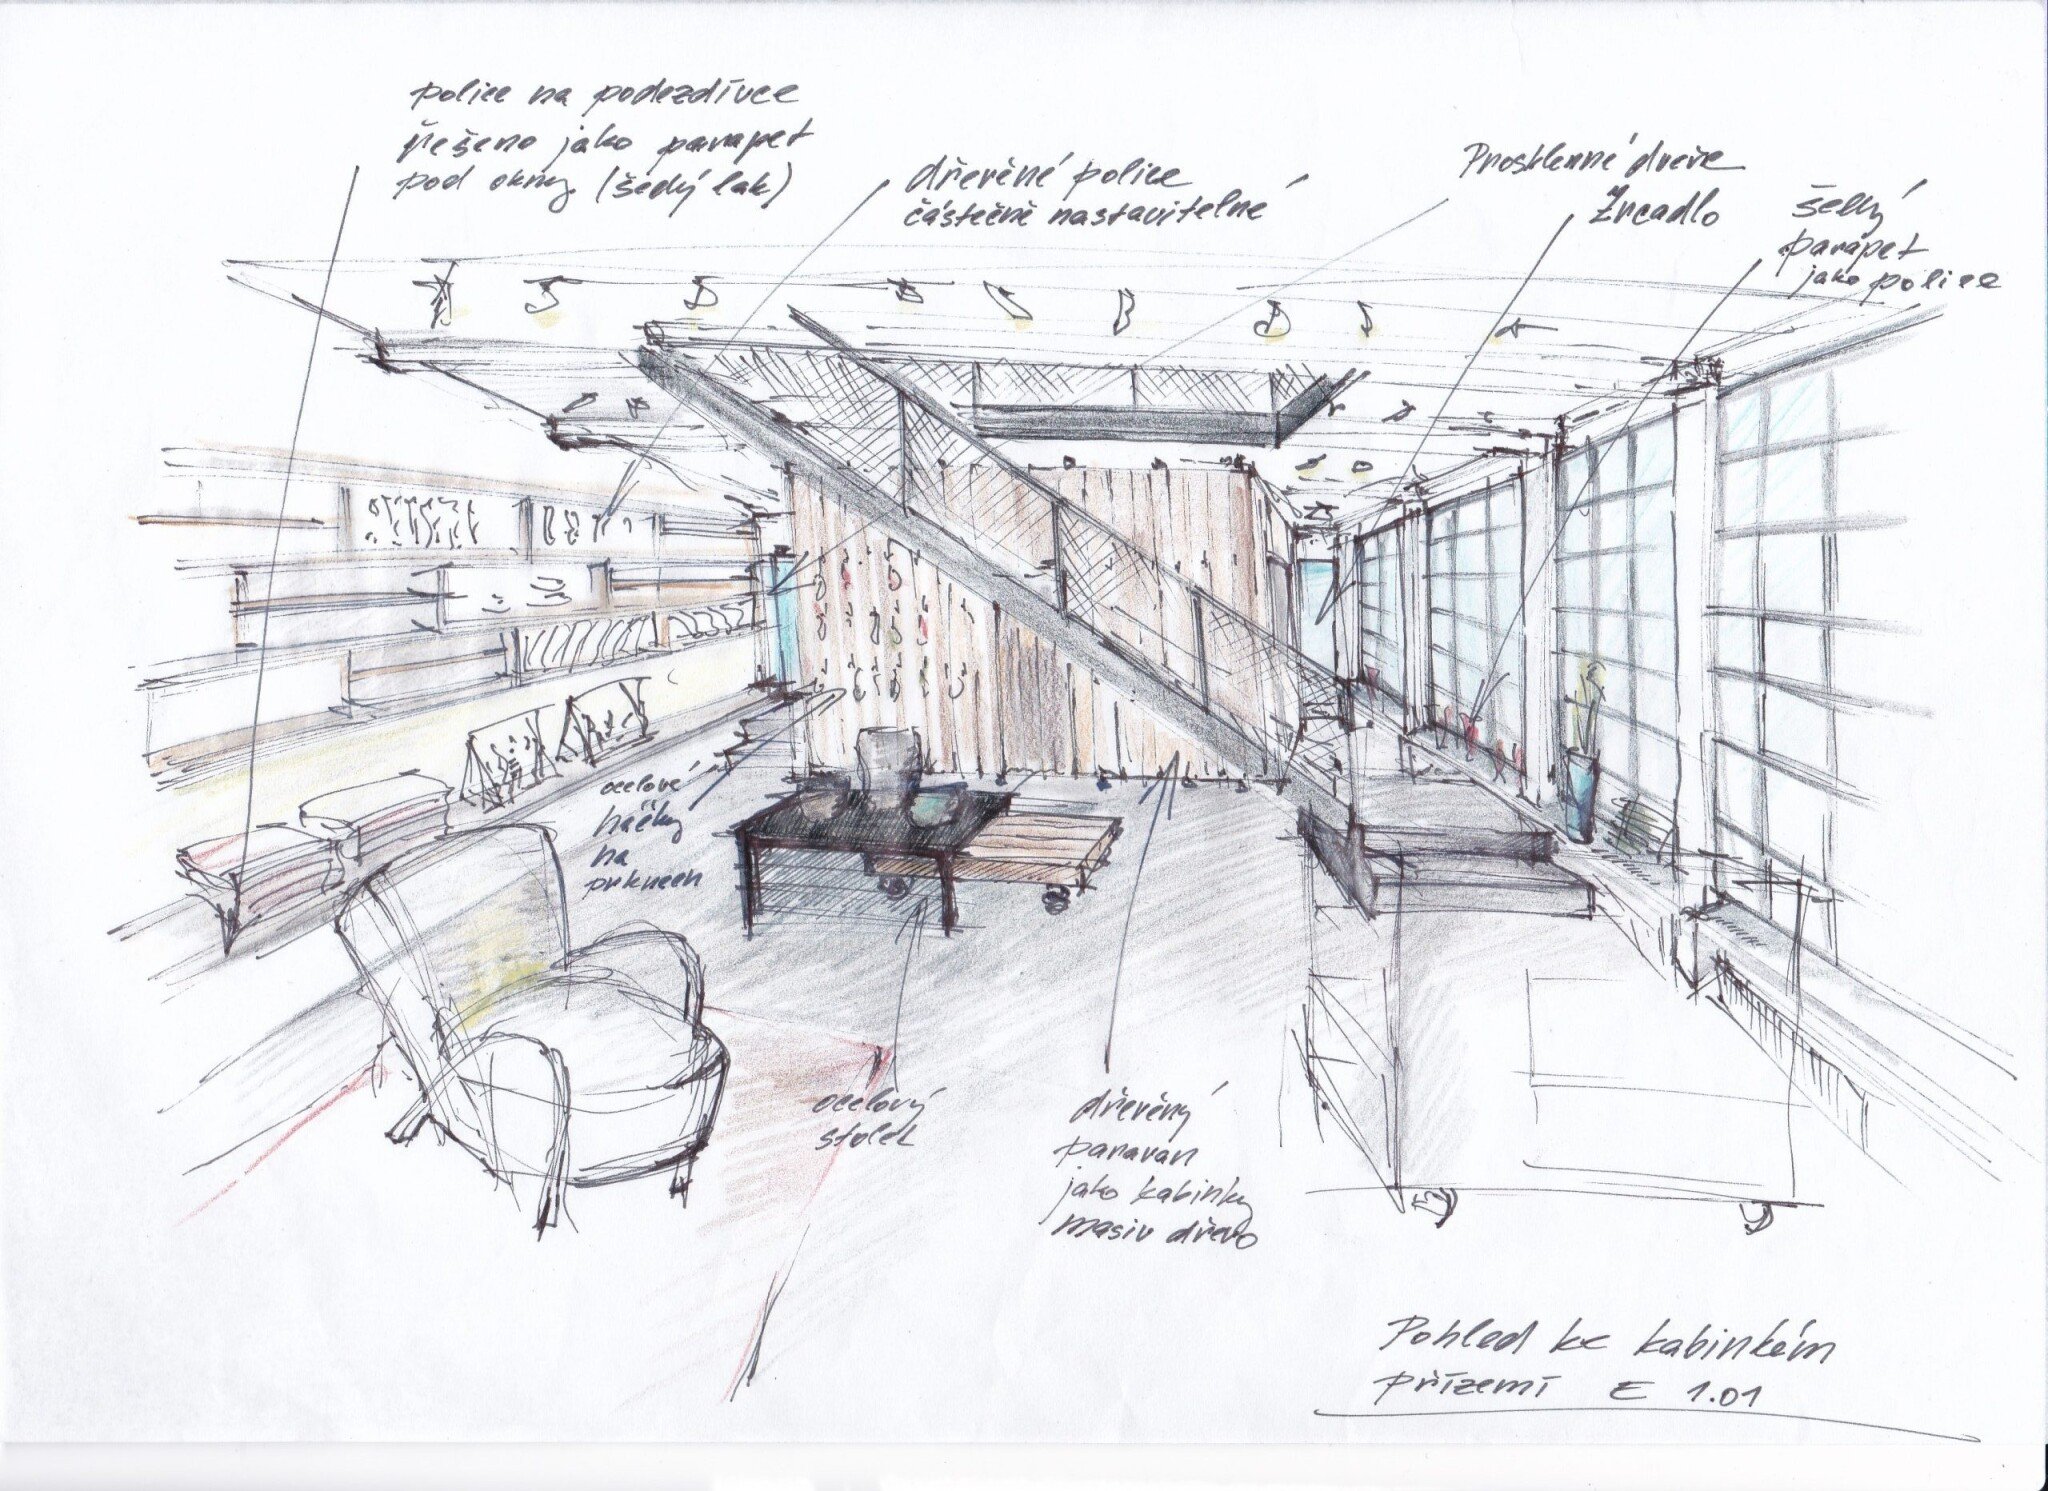 police na podezdívce
řešeno jako parapet
pod okny (šedý lak)
dřevěné police
částečně nastavitelné
Prosklenné dveře
Zrcadlo
šedý
parapet
jako police
ocelové
háčky
na
prknech
ocelový
stolek
dřevěný
paravan
jako kabinky
masiv dřevo
Pohled ke kabinkám
přízemí E 1.01